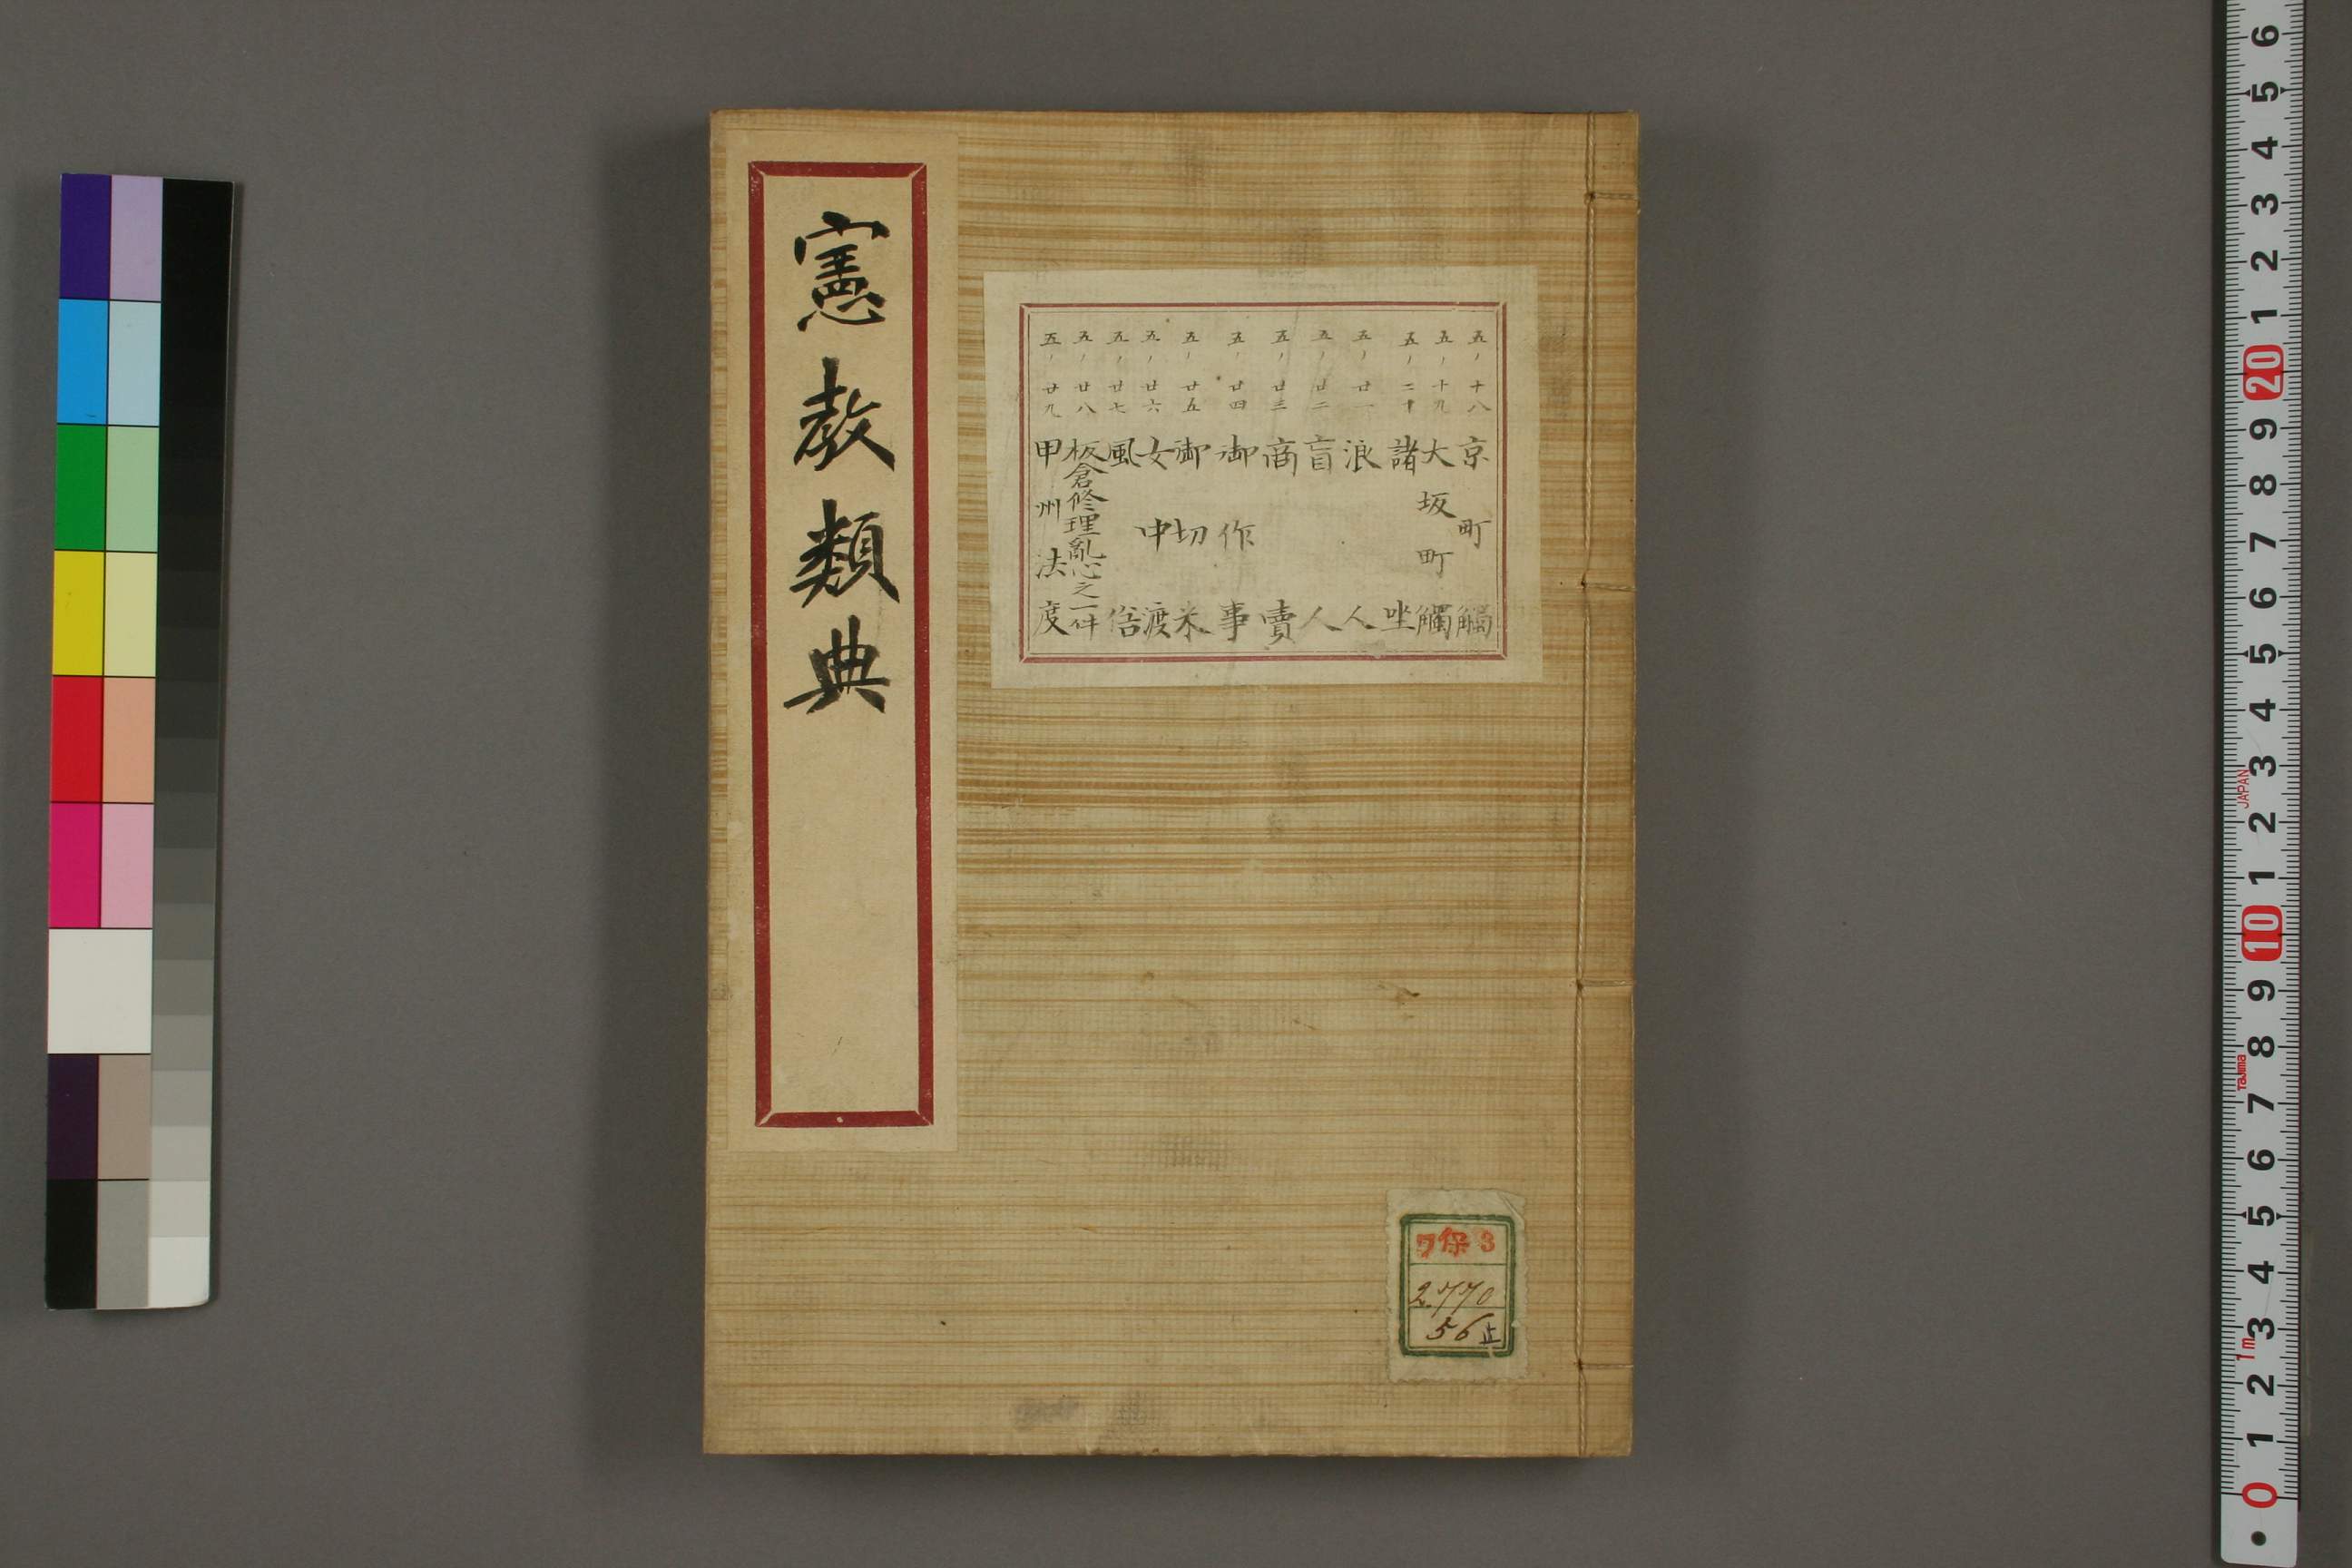 憲教類典
五ノ十八 京町觸
五ノ十九 大坂町觸
五ノ二十 諸坐
五ノ廿一 浪人
五ノ廿二 盲人
五ノ廿三 商賣
五ノ廿四 御作事
五ノ廿五 御切米
五ノ廿六 女中渡
五ノ廿七 風俗
五ノ廿八 板倉修理亂心之一件
五ノ廿九 甲州法度
ワ保3
2.770
56止
6
5
4
3
2
1
20
9
8
7
6
5
4
3
JAPAN
2
1
10
9
8
Tajima
7
6
5
4
3
1m
2
1
0